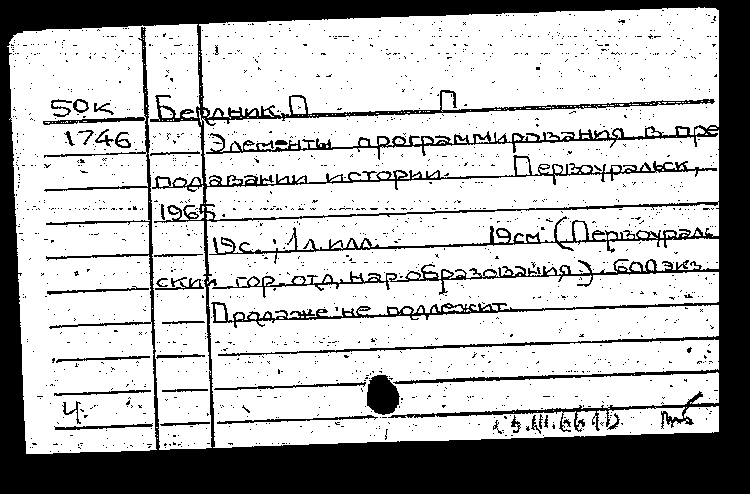 50к Бердник, П П.
1746 Элементы программирования в пре
подавании истории. Первоуральск,
1965.
19с.; 1л.илл. 19см. (Первоураль
ский гор. отд. нар. образования). 600 экз.
Продаже не подлежит.
Ч.